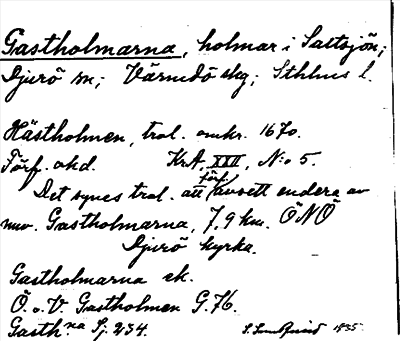 Gastholmarna, holmar i Saltsjön;
Djurö sn; Värmdö skg; Sthlms l.
Hästholmen, trol. omkr. 1670.
Förf. okd. KrA, XXII, N:o 5.
Det synes trol. att förf. avsett endera av
nuv. Gastholmarna, 7,9 km. ÖNÖ
Djurö kyrka.
Gastholmarna ek.
Ö. o. V. Gastholmen G. 76.
Gasth:na Sj. 234.
S. 1935